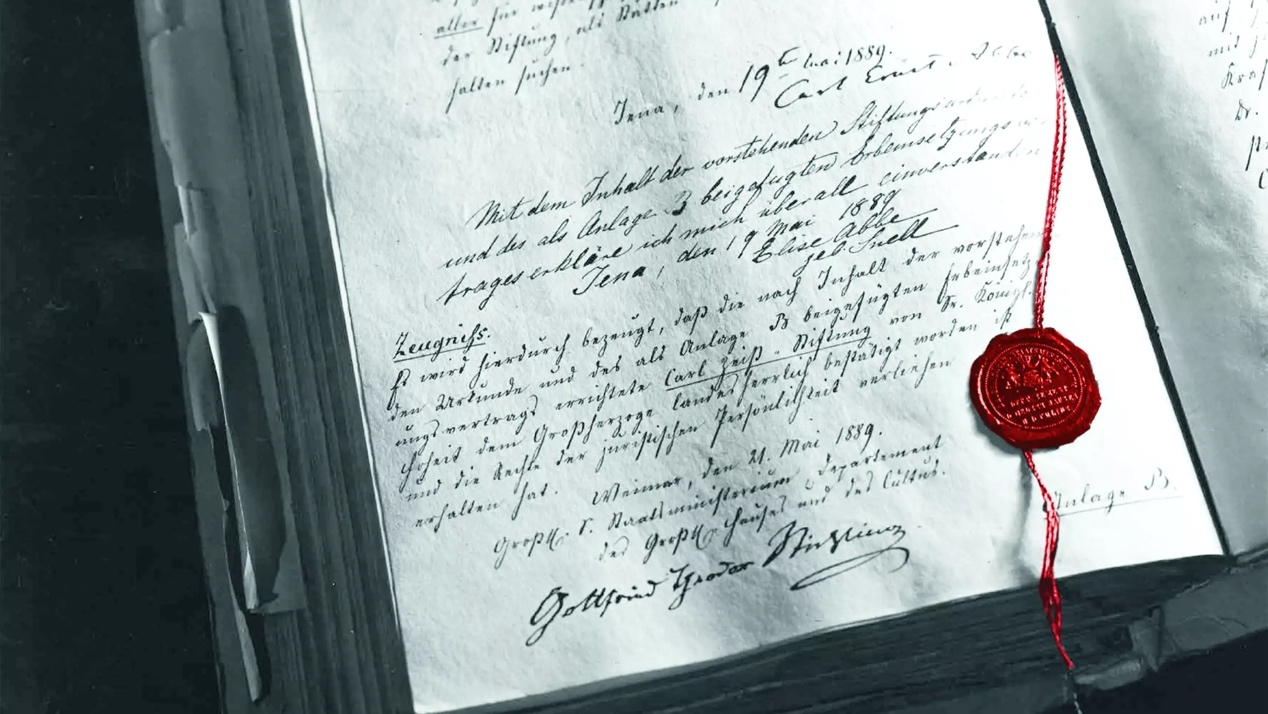 aller für
der Stiftung, als
halten suchen.
Jena, den 19t Mai 1889.
Carl Ernst Abbe
Mit dem Inhalt der vorstehenden
und des als Anlage B beigefügten Erbeinsetzungsver-
trages erkläre ich mich überall einverstanden
Jena, den 19 Mai 1889
Elise Abbe
geb. Snell
Zeugniß.
Es wird hierdurch bezeugt, daß die nach Inhalt der vorstehen
den Urkunde und des als Anlage B beigefügten Erbeinsetz
ungsvertrags errichtete Carl Zeiß-Stiftung von Sr. Königl.
Hoheit dem Großherzoge landesherrlich bestätigt worden ist
und die Rechte der juristischen Persönlichkeit verliehen
erhalten hat. Weimar, den 21. Mai 1889.
Großh. S. Staatsministerium, Departement
des Großh. Hauses und des Cultus.
Gottfried Theodor Stichling
Anlage B.
auf
mit
Dr.